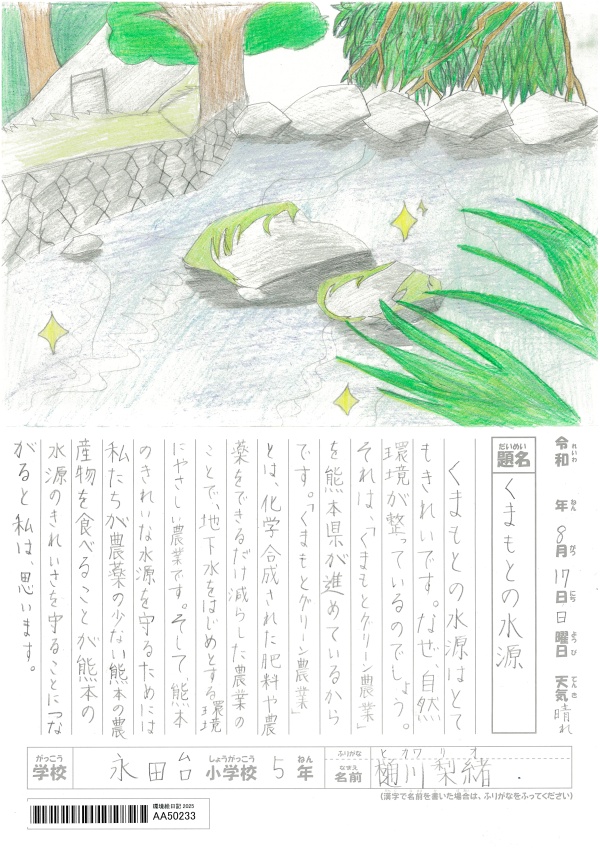 令和 年 8月 17日 日曜日 天気 晴れ
れいわ ねん がつ にち ようび てんき
だいめい
題名 くまもとの水源
くまもとの水源はとて
もきれいです。なぜ、自然
環境が整っているのでしょう。
それは、「くまもとグリーン農業」
を熊本県が進めているから
です。「くまもとグリーン農業」
とは、化学合成された肥料や農
薬をできるだけ減らした農業の
ことで、地下水をはじめとする環境
にやさしい農業です。そして熊本
のきれいな水源を守るためには
私たちが農薬の少ない熊本の農
産物を食べることが熊本の
水源のきれいさを守ることにつな
がると私は、思います。
がっこう しょうがっこう ねん
学校 永田台 小学校 5年
ふりがな ヒカワ リオ
なまえ
名前 樋川梨緒
(漢字で名前を書いた場合は、ふりがなをふってください)
環境絵日記 2025
AA50233